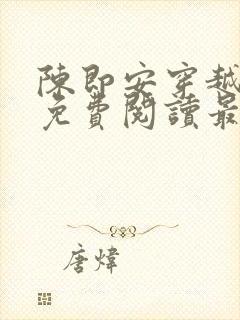 陳即安穿越
免費閱讀最
唐煒